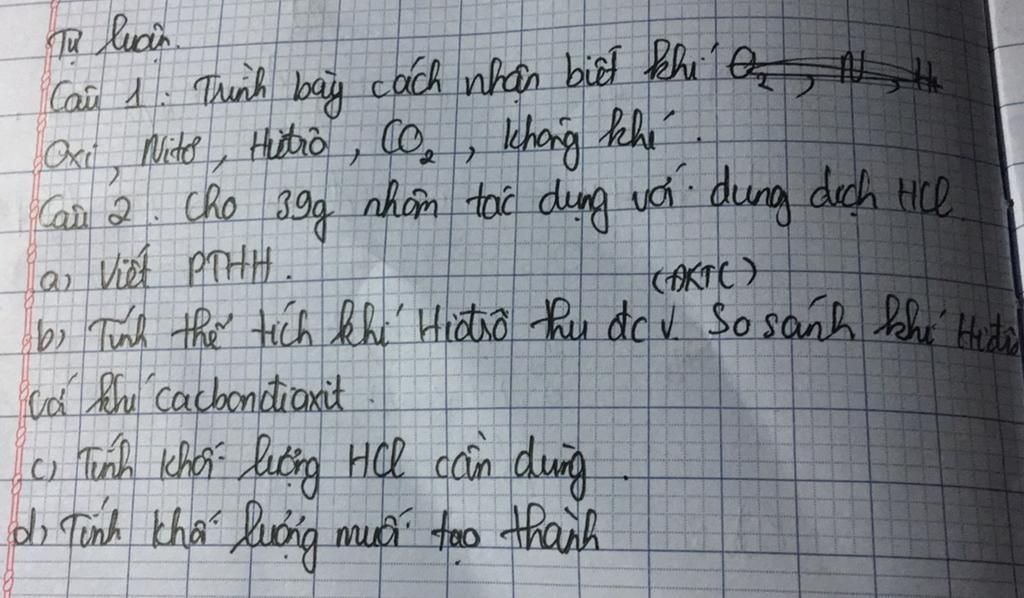 Tự luận.
Câu 1 : Trình bày cách nhận biết khí O2, N, H
Oxi, Nitơ, Hiđrô, CO2, không khí.
Câu 2. Cho 39g nhôm tác dụng với dung dịch HCl
a) Viết PTHH.
(ĐKTC)
b) Tính thể tích khí Hiđrô thu đc v. So sánh khí Hiđrô
với khí cacbonđioxit.
c) Tính khối lượng HCl cần dùng.
d) Tính khối lượng muối tạo thành